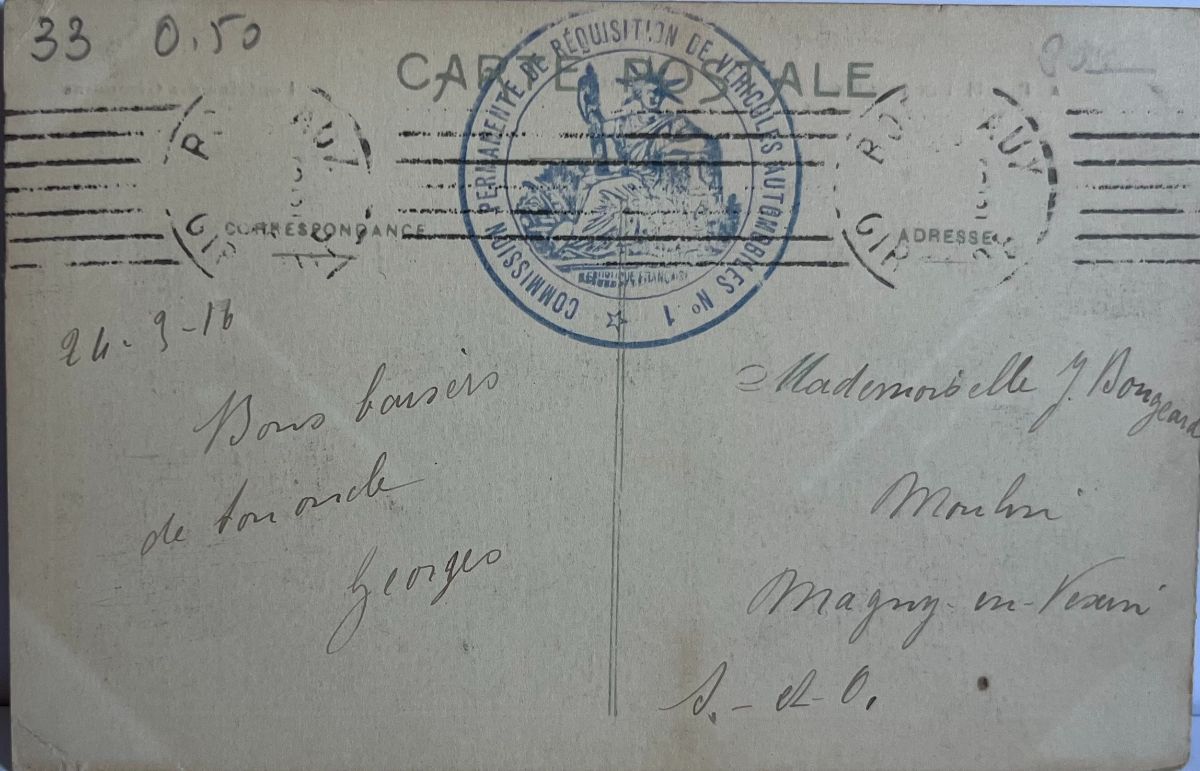 33 0.50
CARTE POSTALE
COMMISSION PERMANENTE DE RÉQUISITION DE VÉHICULES AUTOMOBILES No 1
RÉPUBLIQUE FRANÇAISE
CORRESPONDANCE
ADRESSE
24-9-16
Bons baisers
de ton oncle
Georges
Mademoiselle J. Bougeard
Moulin
Magny-en-Vexin
S.-et-O.